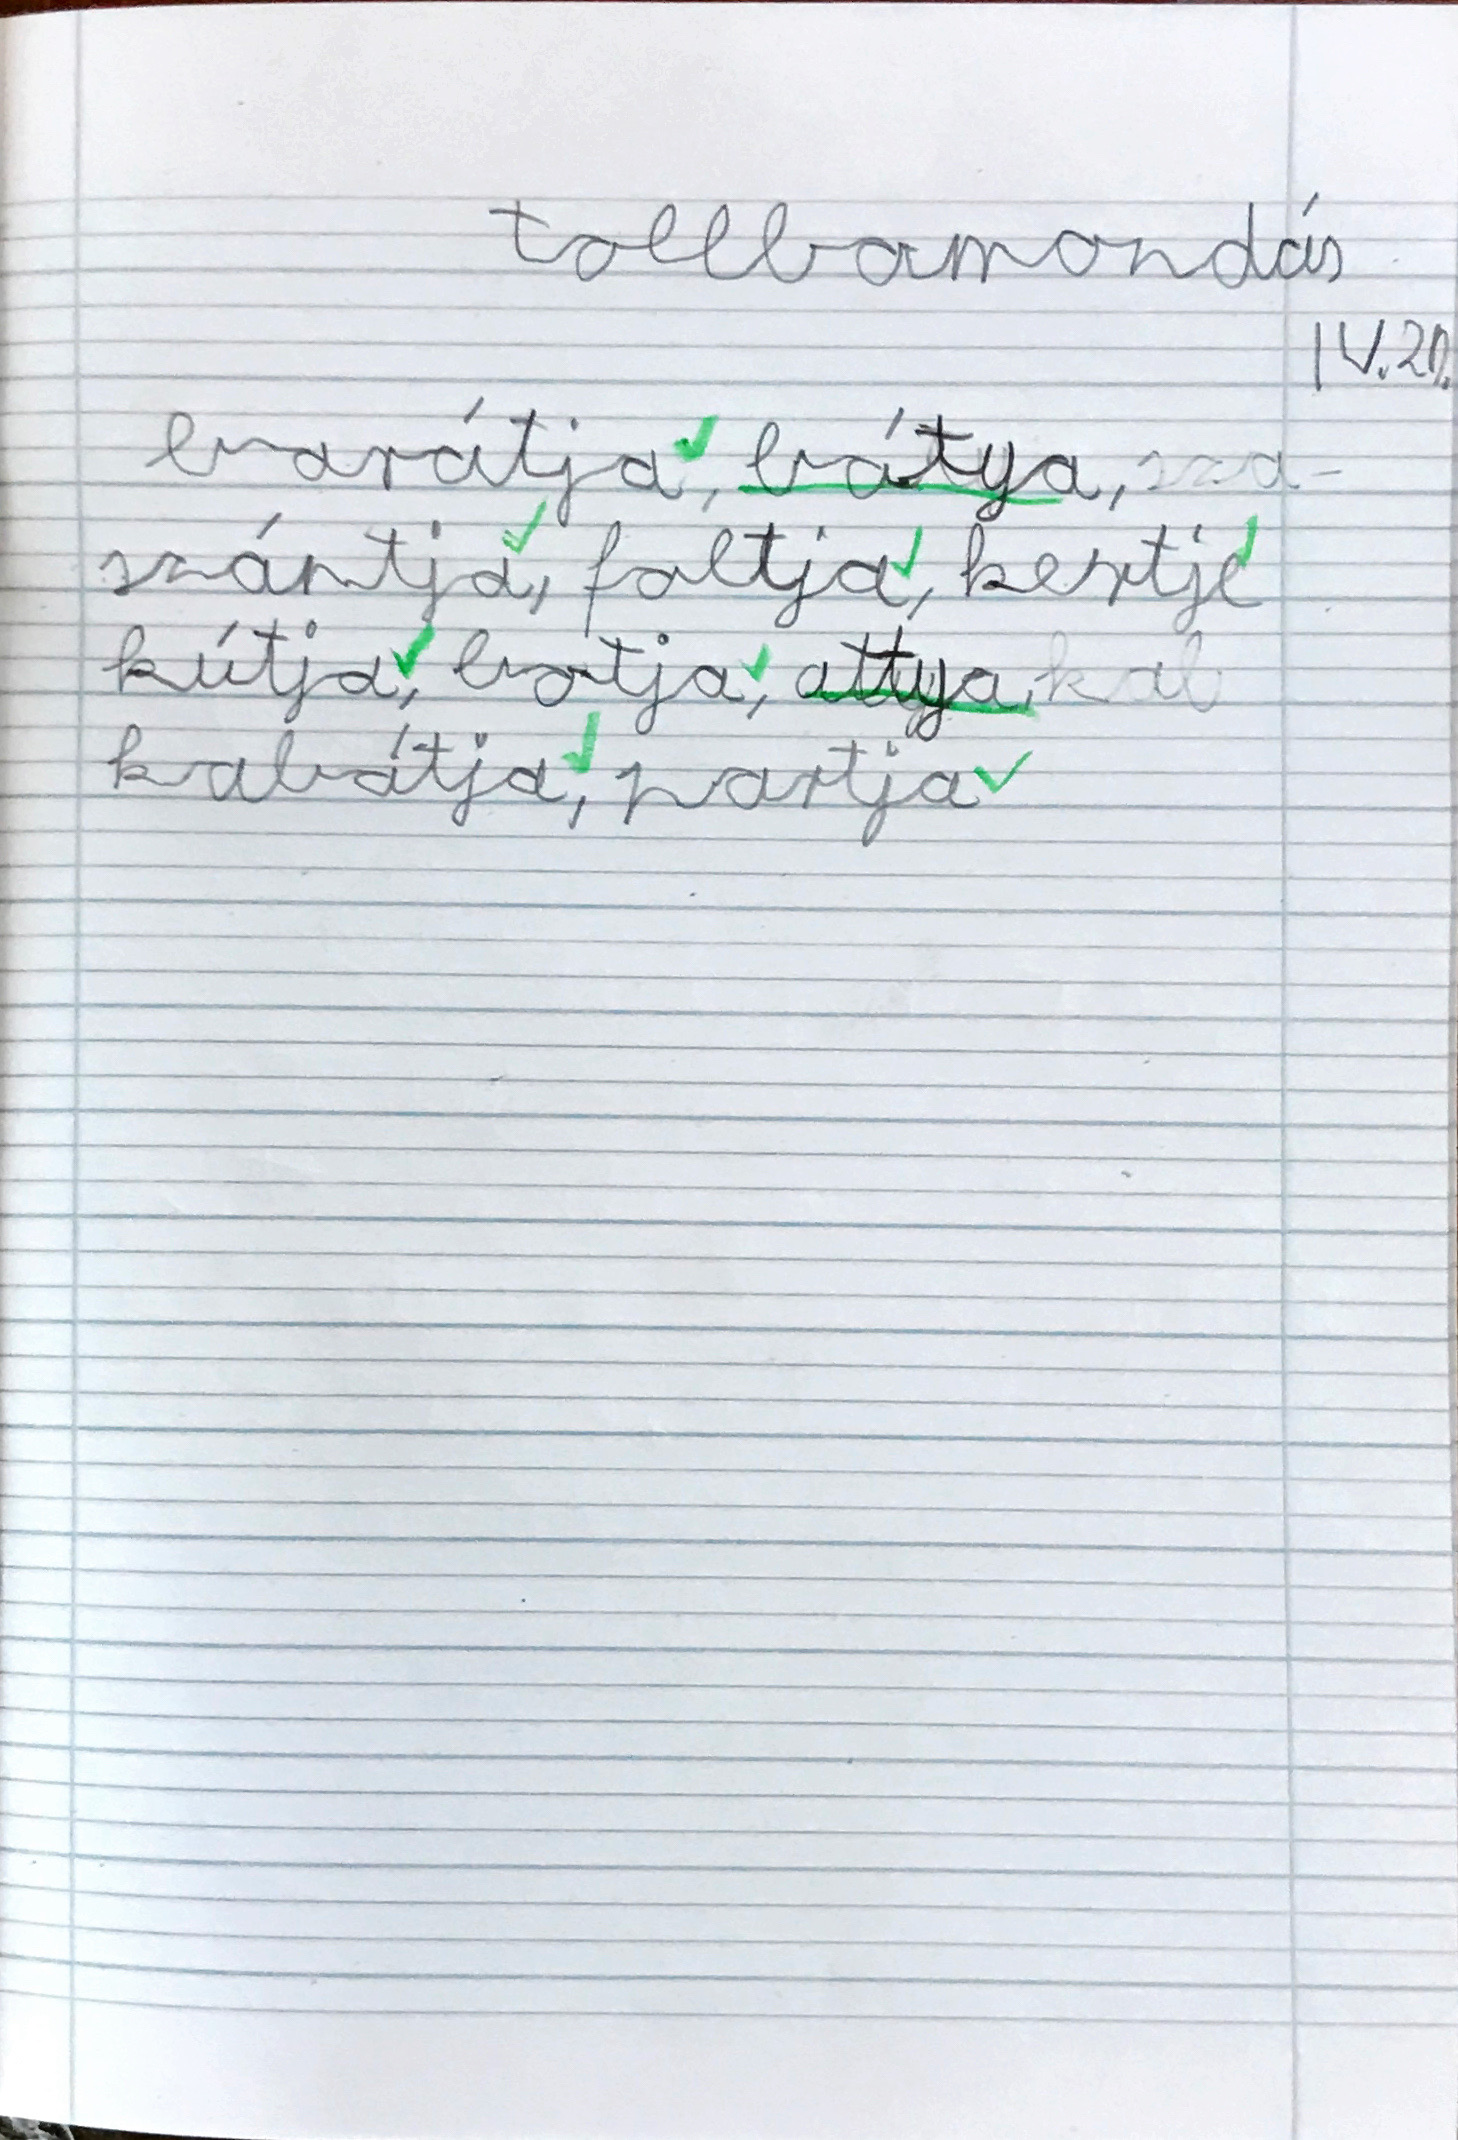 tollbamondás
IV. 20.
barátja, bátya, sza-
szántja, foltja, kertje
kútja, botja, attya, kab
kabátja, partja